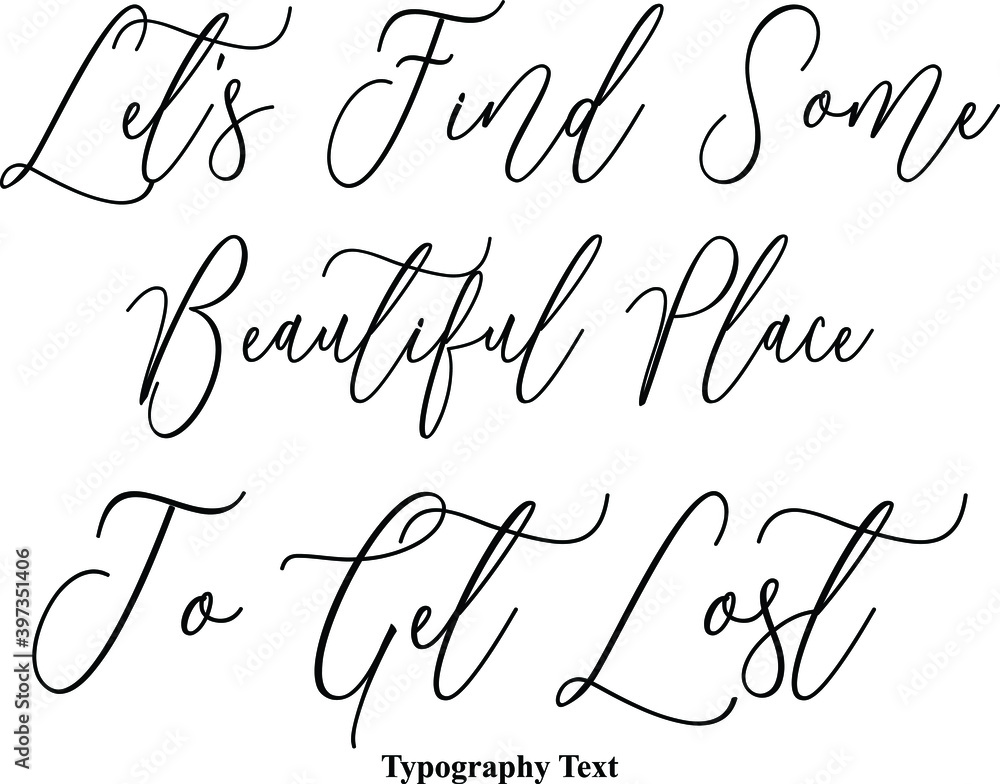 Let's Find Some
Beautiful Place
To Get Lost
Typography Text
Adobe Stock | #397351406
Adobe Stock